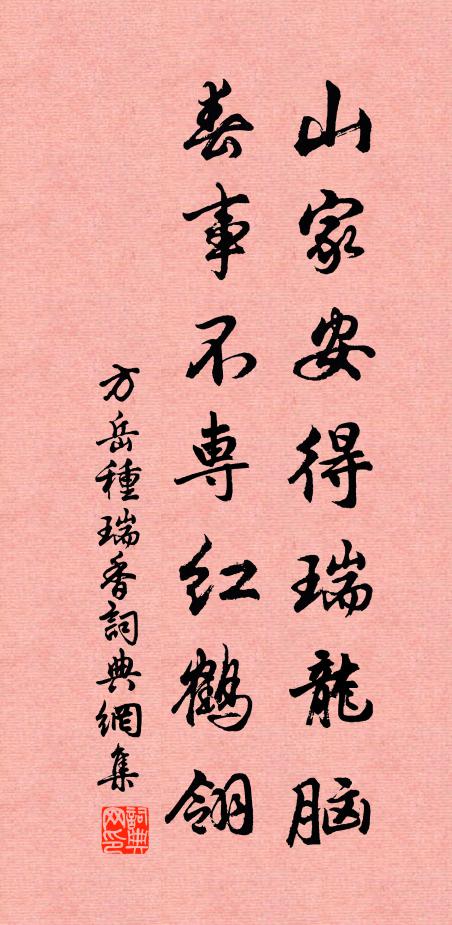 山家安得瑞龍脑
春事不専紅鶴翎
方岳種瑞香詞典網集
詞典网印